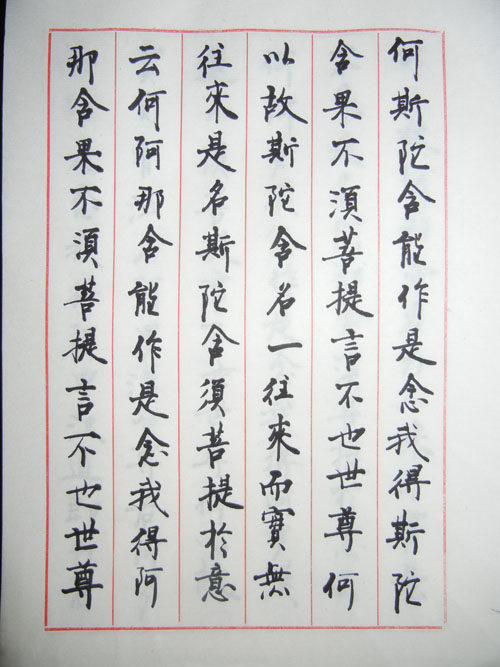 何斯陀含能作是念我得斯陀
含果不須菩提言不也世尊何
以故斯陀含名一往來而實無
往來是名斯陀含須菩提於意
云何阿那含能作是念我得阿
那含果不須菩提言不也世尊